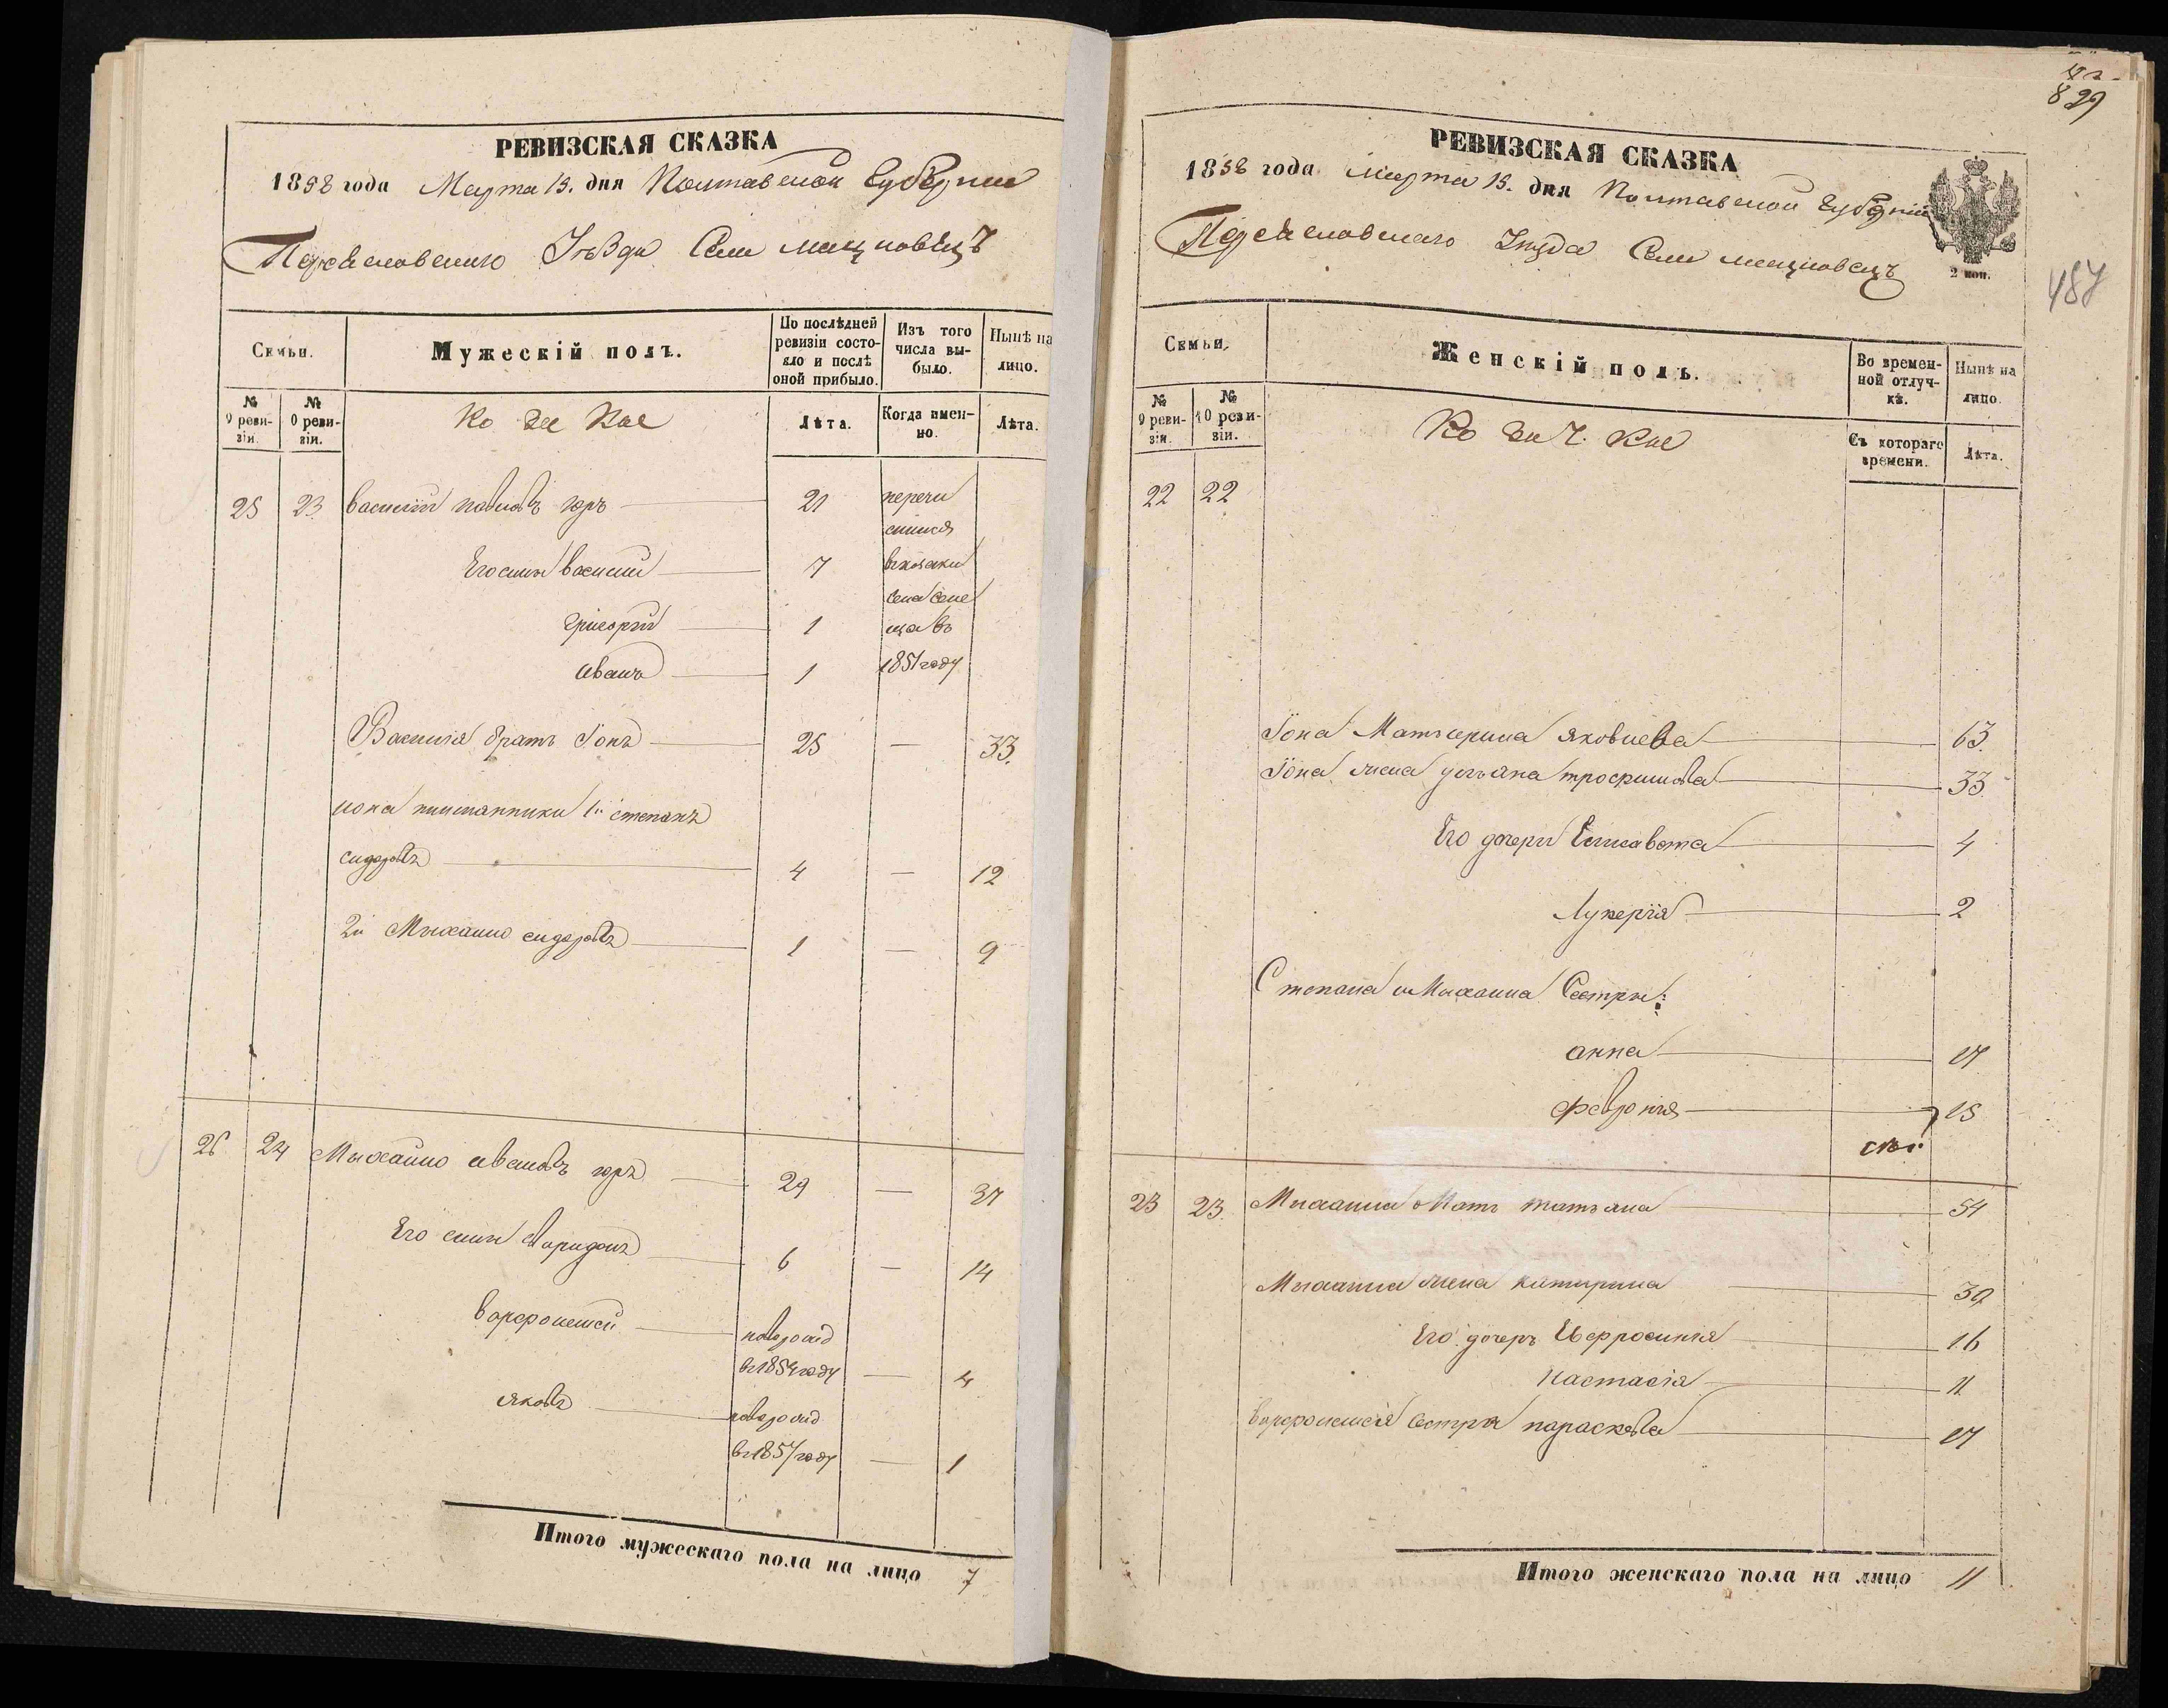 РЕВИЗСКАЯ СКАЗКА
1858 года Марта 15. дня Полтавской Губернии
Переяславского Уѣзда Села Мацковецъ
Семьи.
Мужескій полъ.
По послѣдней ревизіи состояло и послѣ оной прибыло.
Изъ того числа выбыло.
Нынѣ на лицо.
№ 9 ревизіи.
№ 0 ревизіи.
Лѣта.
Когда именно.
Лѣта.
25 23 василій павловъ 21 перечи
слился
Его сынъ василій 7 въ козаки
села
григорій 1 въ
иванъ 1 1851 году
Василія братъ Іонъ 25 — 33.
иона 1й степанъ
сидоровъ 4 — 12
2й Михаило сидоровъ 1 — 9
26 24 Михайло ивановъ 29 — 37
Его сынъ 6 — 14
варфоломей новорожд
въ 1854 году — 4
яковъ новорожд
въ 1857 году — 1
Итого мужескаго пола на лицо 7
829
487
РЕВИЗСКАЯ СКАЗКА
1858 года Марта 15. дня Полтавской Губерніи
Переяславского Уѣзда Села мацковецъ
2 коп.
Семьи.
Женскій полъ.
Во временной отлучкѣ.
Нынѣ на лицо.
№ 9 ревизіи.
№ 10 ревизіи.
Съ котораго времени.
Лѣта.
22 22
Іона Мать ирина яковлева 63.
Іона жена ульяна трофимова 33
Его дочери Елисавета 4
Лукерія 2
Степана и Михаила Сестры:
анна 17
феврония 15
23 23. Михаила Мать татьяна 54
Михаила жена катирина 39
Его дочерь Ефросинія 16
настасія 11
варфоломея сестра параскева 17
Итого женскаго пола на лицо 11